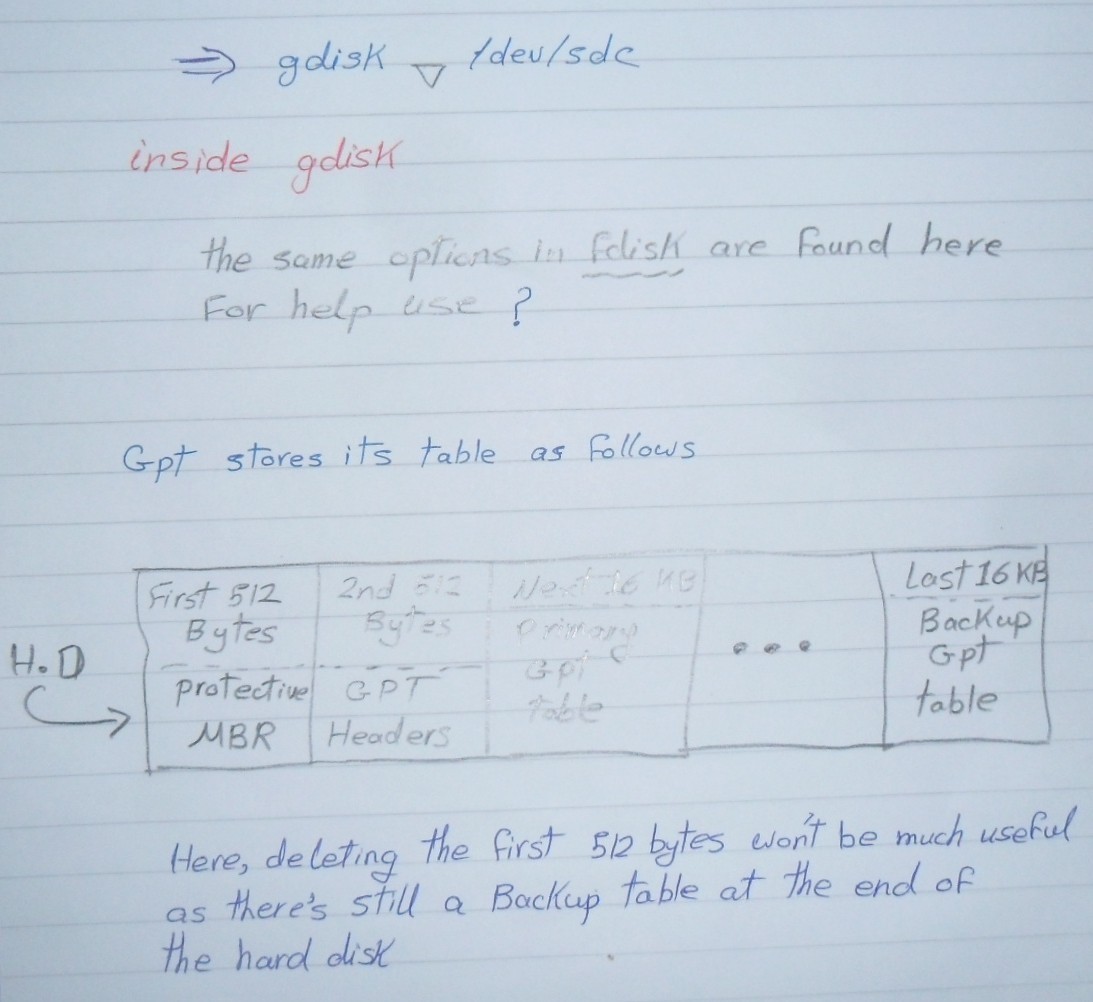 ⇒ gdisk ▽ /dev/sdc
inside gdisk
the same options in fdisk are found here
For help use ?
Gpt stores its table as follows
H.D
First 512
Bytes
protective
MBR
2nd 512
Bytes
GPT
Headers
Next 16 KB
primary
Gpt
table
• • •
Last 16 KB
Backup
Gpt
table
Here, deleting the first 512 bytes won't be much useful
as there's still a Backup table at the end of
the hard disk